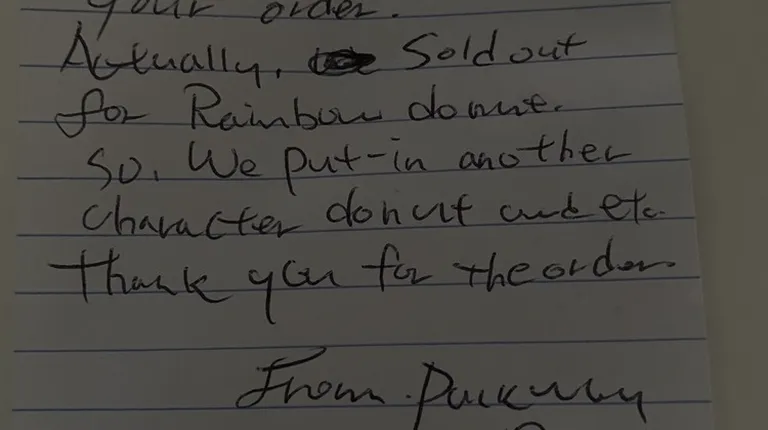 your order.
Actually, Sold out
for Rainbow donut.
So, We put-in another
character donut and etc.
Thank you for the order.
From.